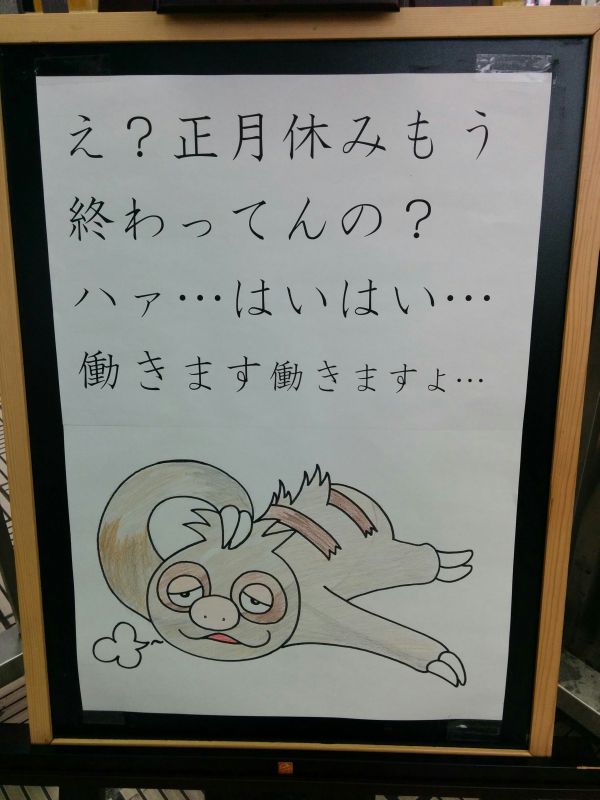 え？正月休みもう
終わってんの？
ハァ…はいはい…
働きます働きますよ…